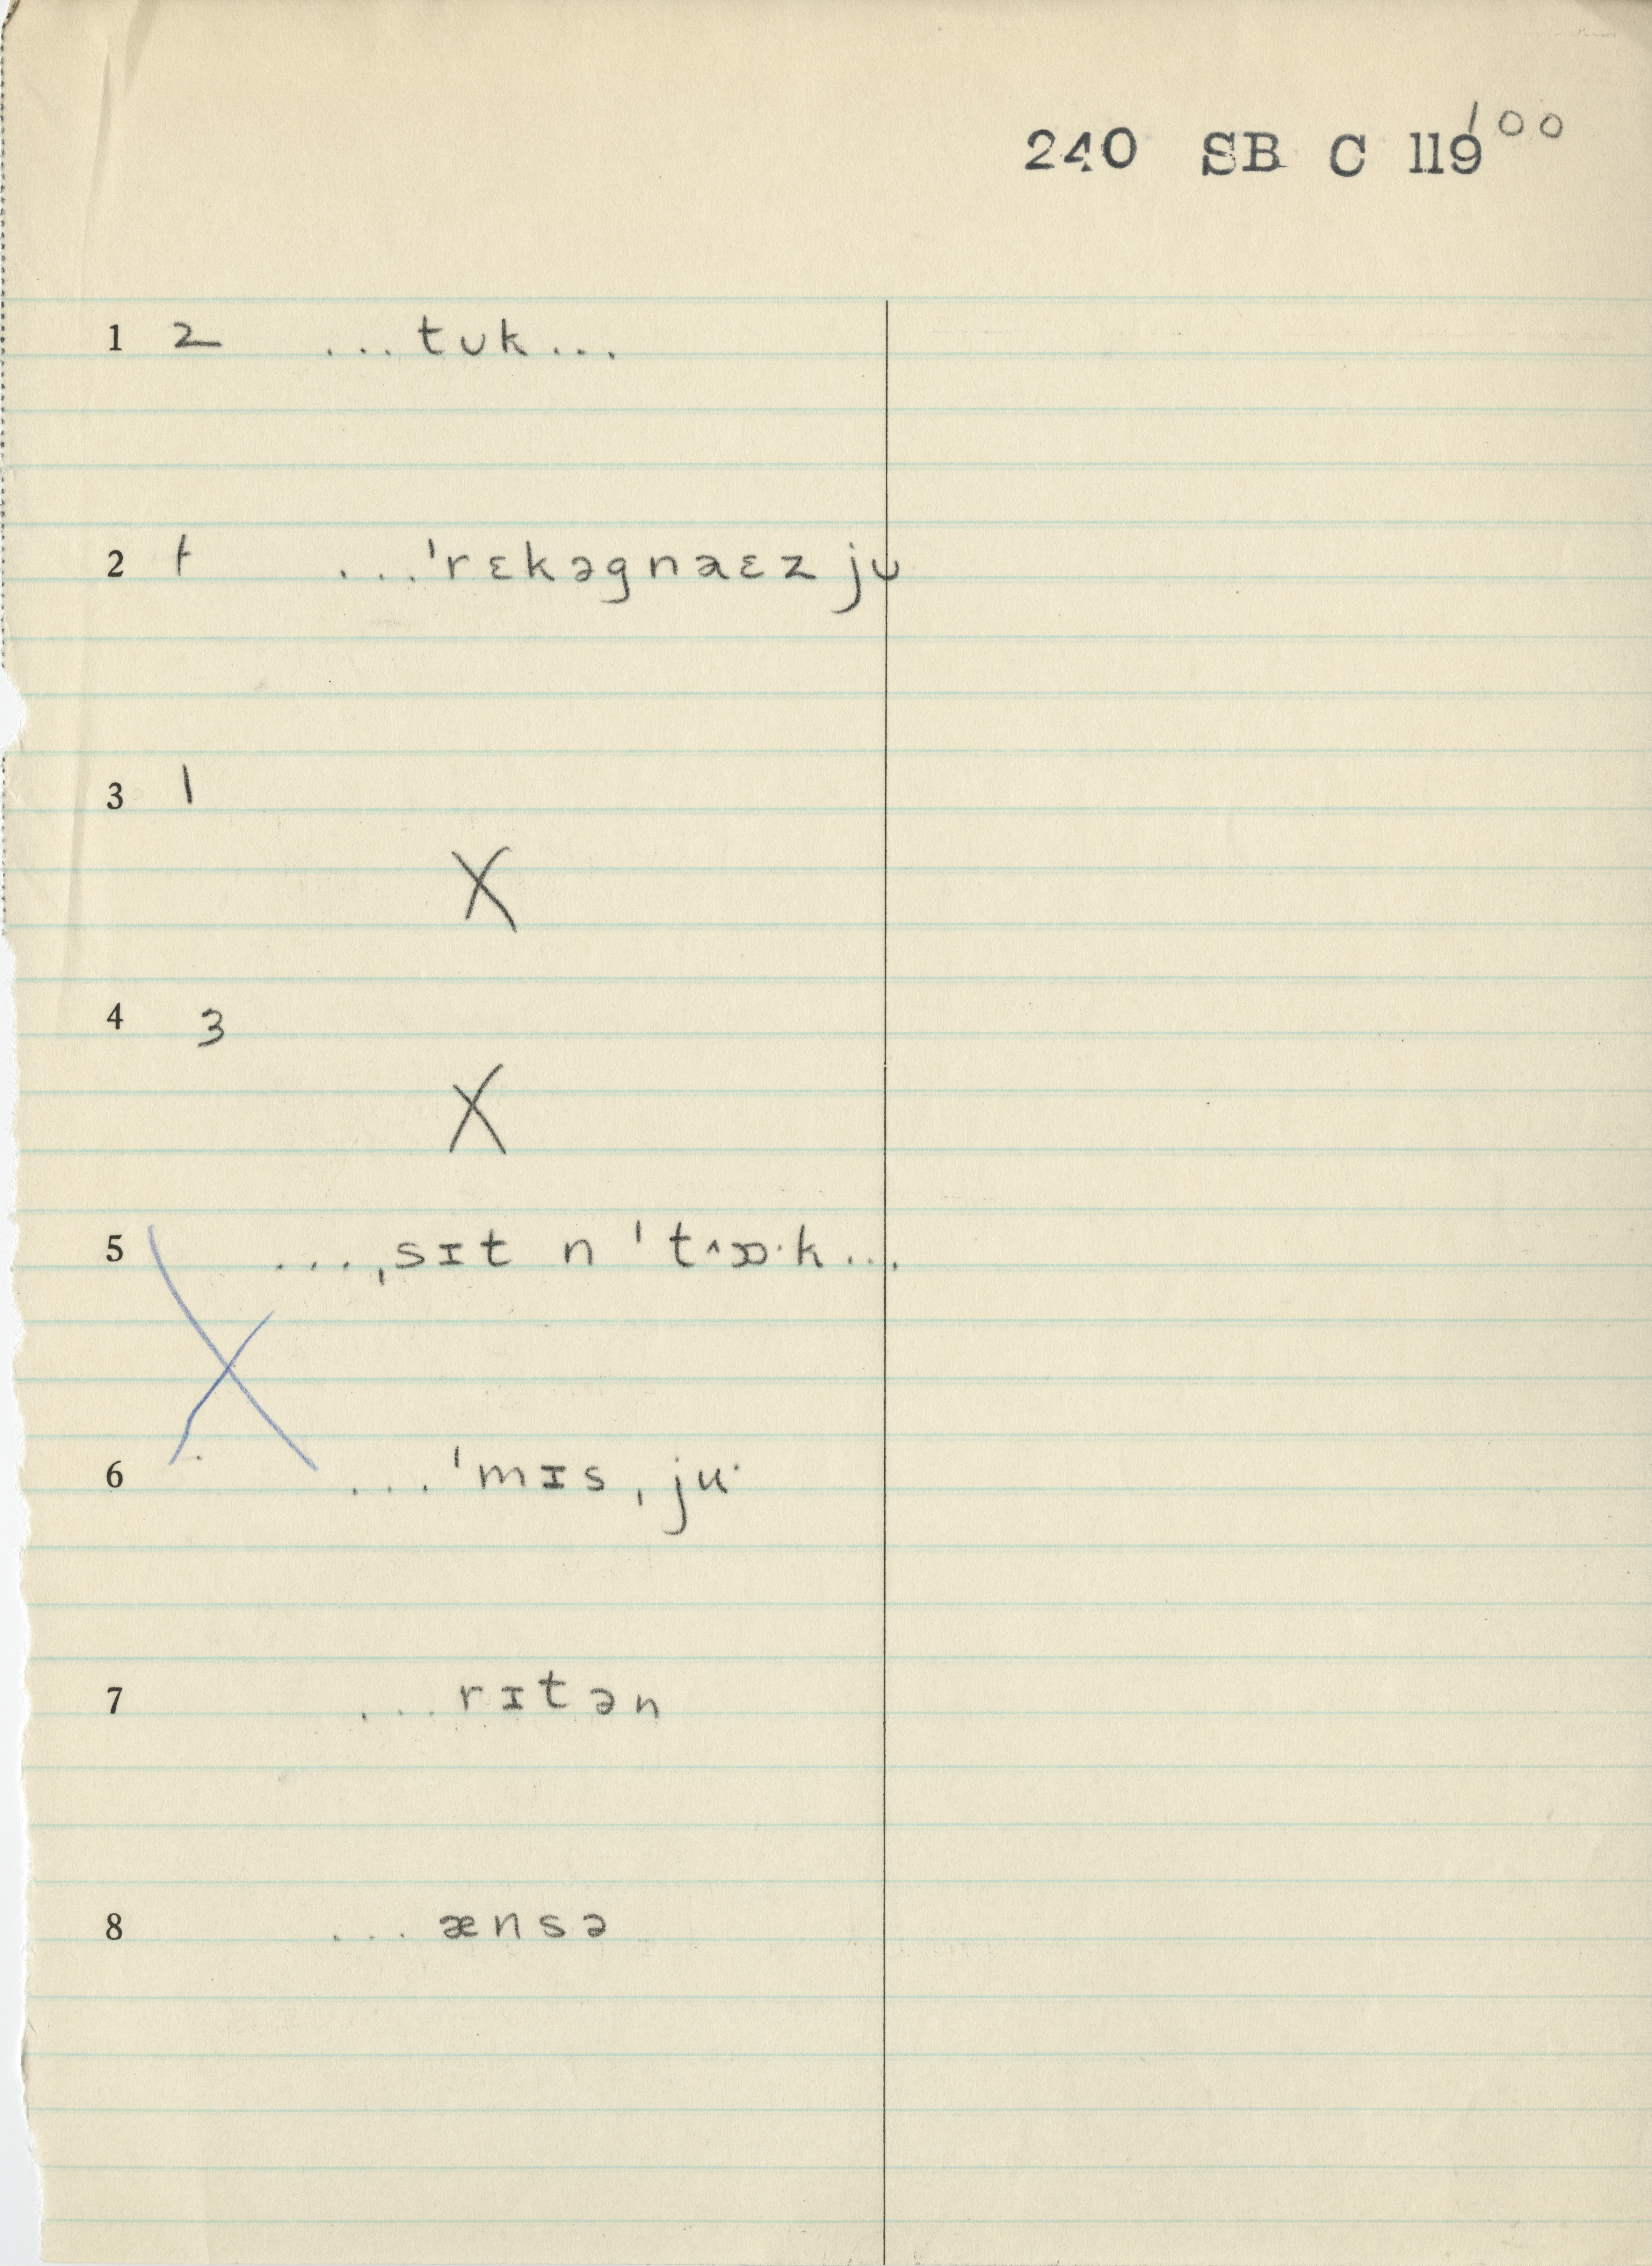 240 SB C 119 100
1 2 ...tʊk...
2 t ...ˈrɛkəgnaɛz jʊ
3 1
X
4 3
X
5 ...ˌsɪt n ˈt^ɔ·k...
6 ...ˈmɪsˌju·
7 ...rɪtən
8 ...ænsə